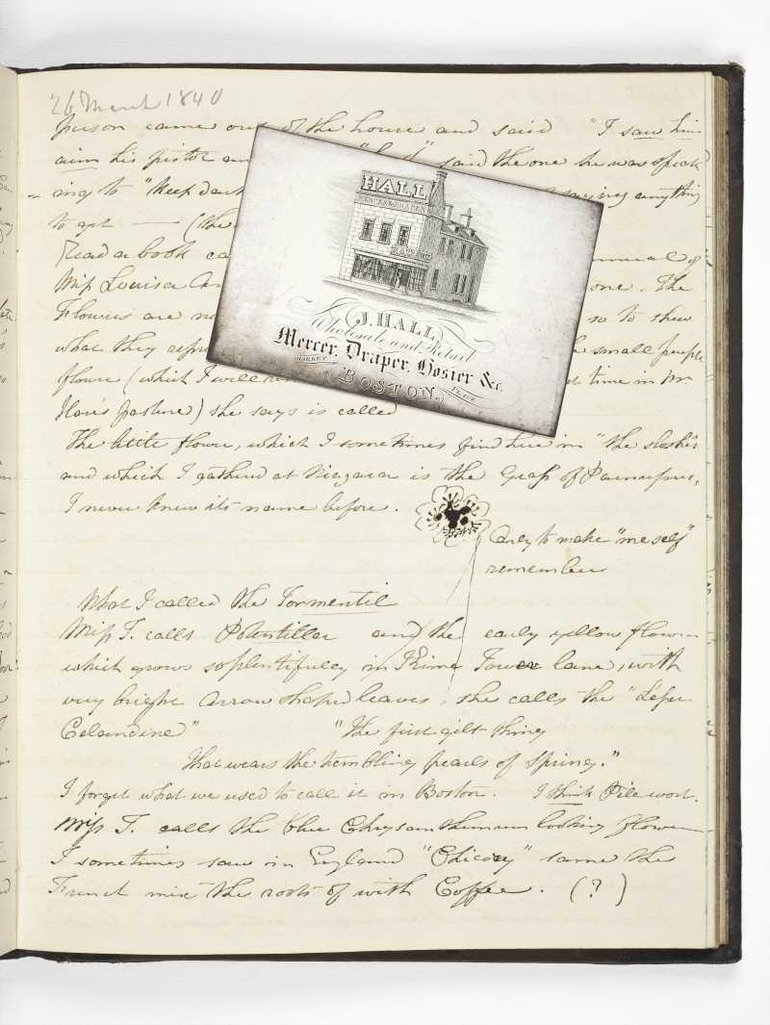 26 March 1840
person came out of the house and said "I saw him
aim his pistol an said the one he was speak
ing to "keep dark saying anything
to
Read a book ca
Miss Louisa one. The
Flowers are no so to shew
what they repr e small purple
flower (which I will time in Mr
pasture) she says is called
The little flower, which I sometimes find here in "the slashes
and which I gathered at Niagara is the Grass of Parnassus,
I never knew its name before.
Only to make "meself"
remember
What I called the Tormentil
Miss T. calls Potentilla and the early yellow flower
which grows so plentifully in Tower lane, with
very bright arrow shaped leaves, she calls the "Lesser
Celandine" "The first gilt thing
That wears the trembling pearls of Spring."
I forget what we used to call it in Boston. I think Pile wort.
Miss T. calls the blue Chrysanthemum looking flower
I sometimes saw in England "Chicory" same the
French mix the roots of with Coffee. (?)
HALL
J. HALL,
Wholesale and Retail
Mercer, Draper, Hosier &c.
MARKET PLACE
(BOSTON.)